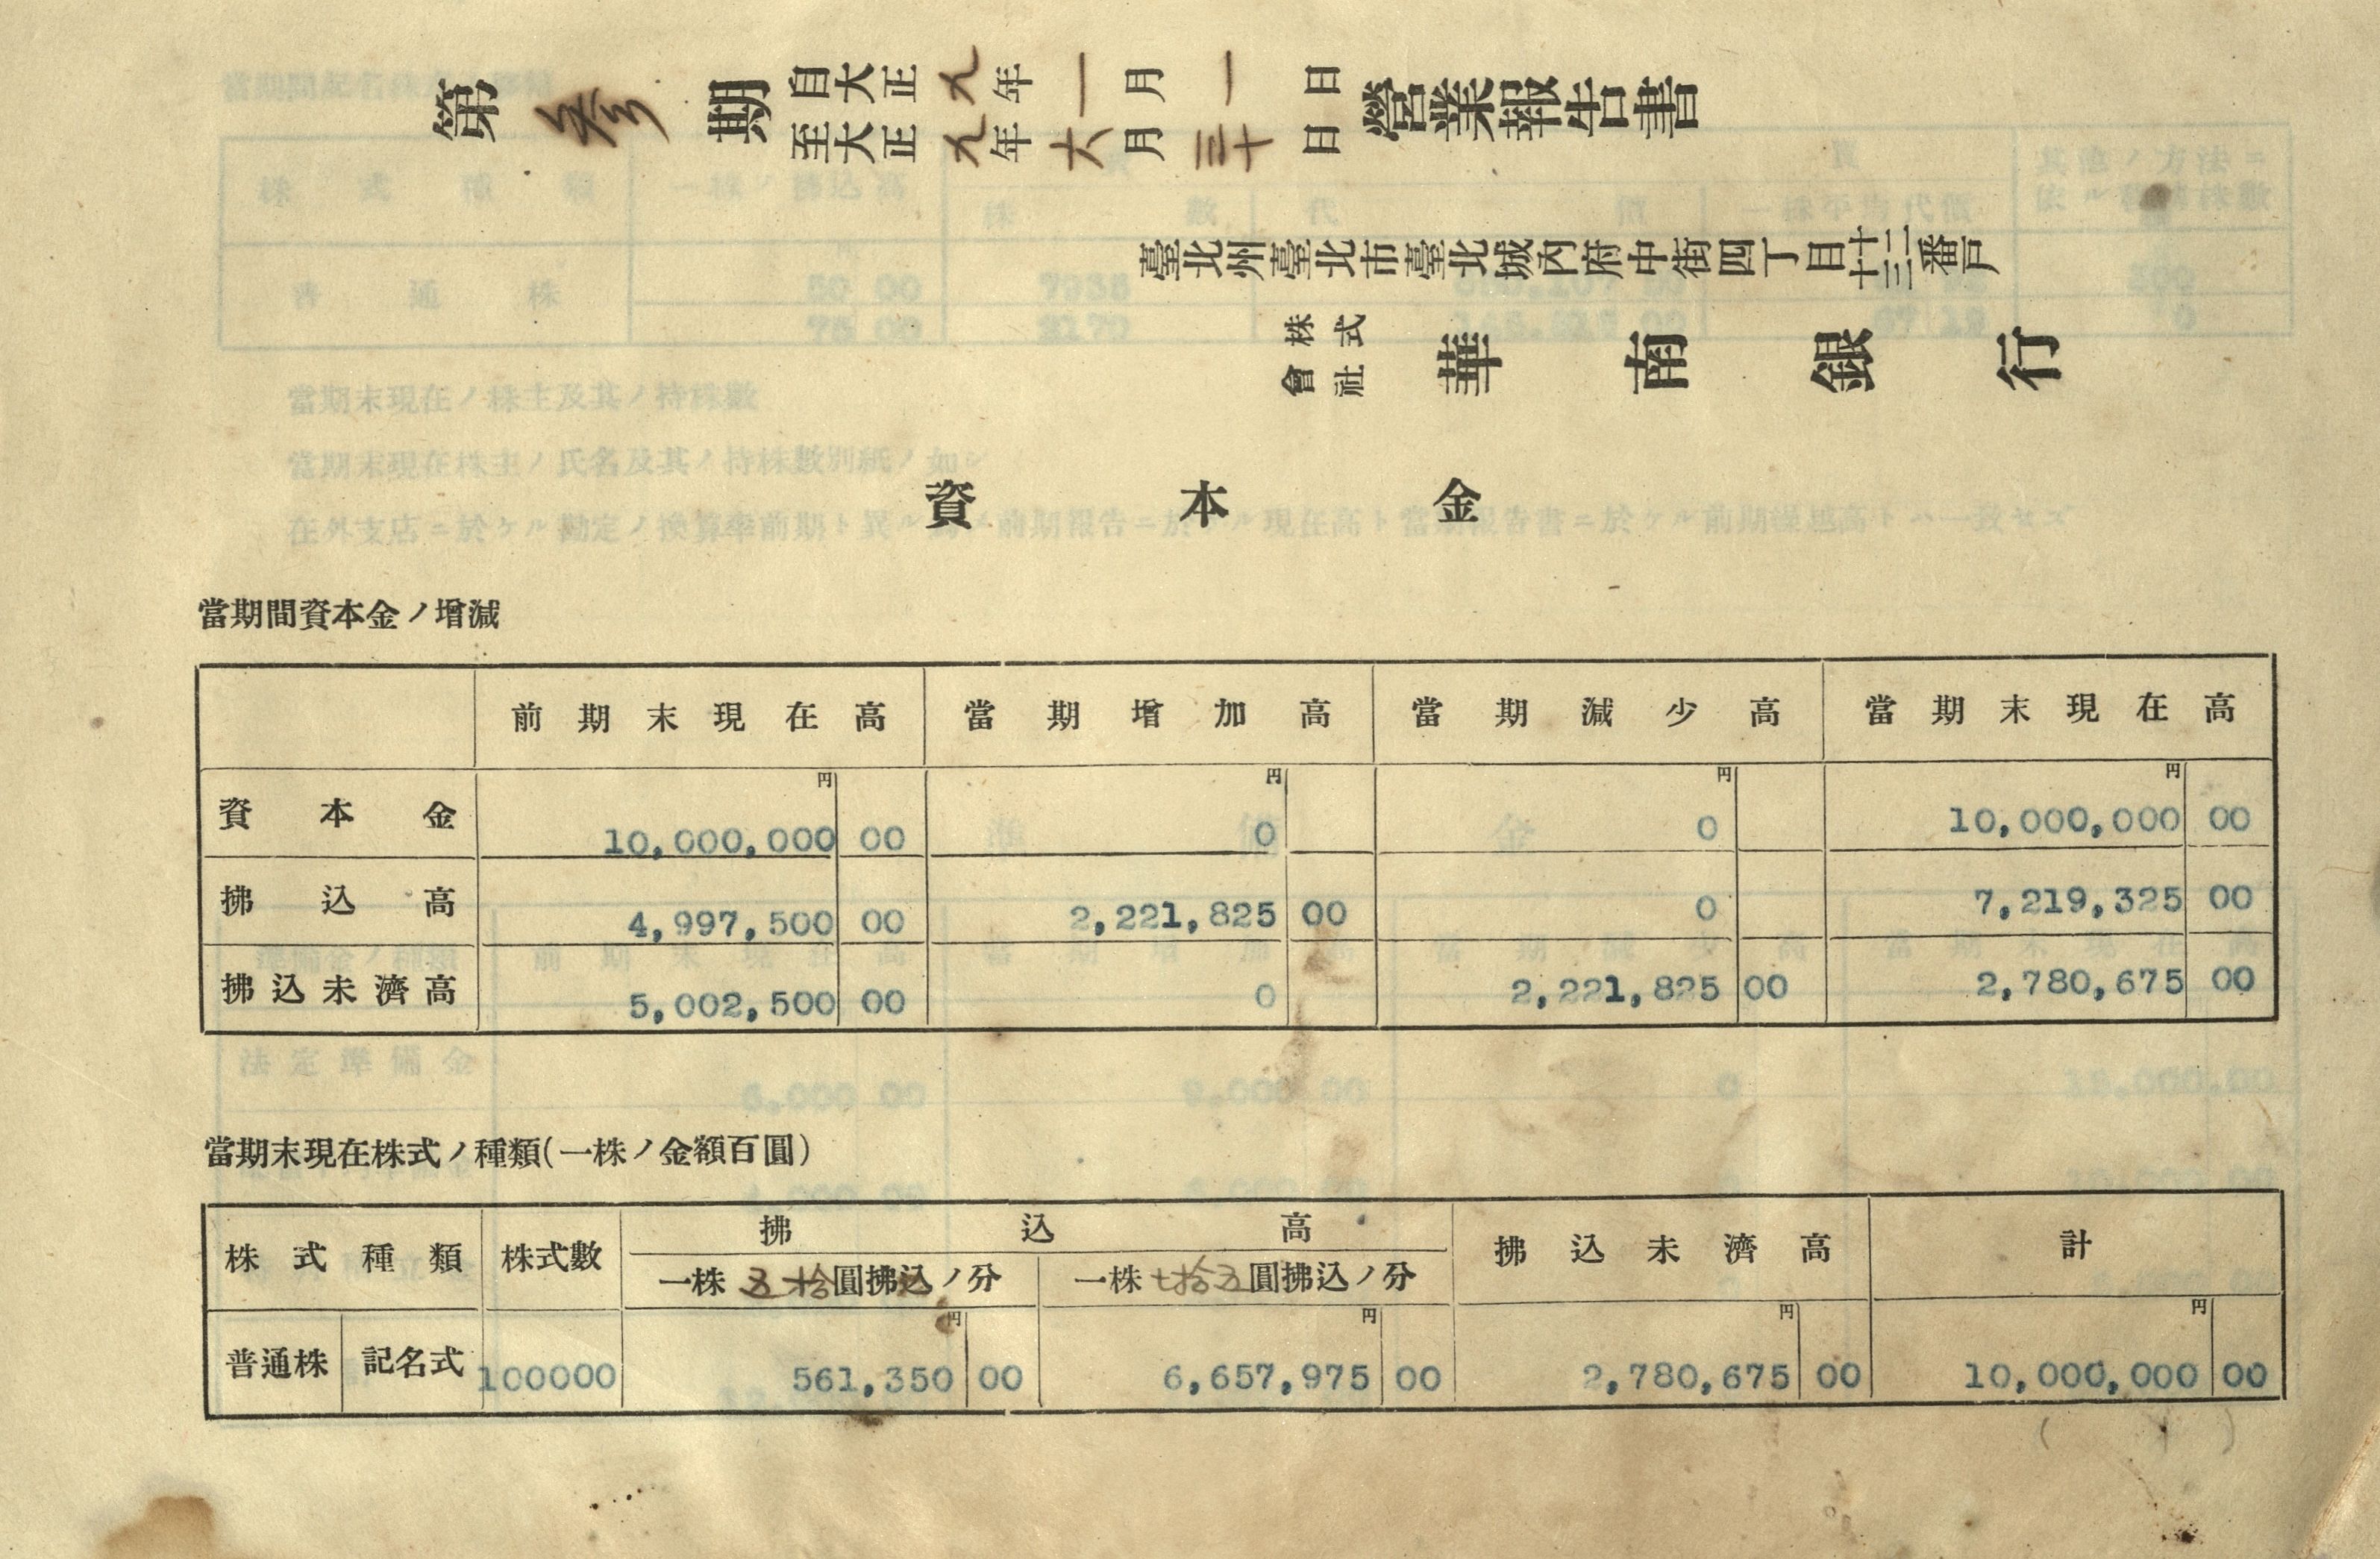 第參期 自大正九年一月一日 營業報告書
至大正九年六月三十日
臺北州臺北市臺北城內府中街四丁目廿二三番戶
株式會社 華南銀行
資本金
當期間資本金ノ增減
前期末現在高 當期增加高 當期減少高 當期末現在高
円 円 円 円
資本金 10,000,000 00 0 0 10,000,000 00
拂込高 4,997,500 00 2,221,825 00 0 7,219,325 00
拂込未濟高 5,002,500 00 0 2,221,825 00 2,780,675 00
當期末現在株式ノ種類(一株ノ金額百圓)
株式種類 株式數 拂込高 拂込未濟高 計
一株五拾圓拂込ノ分 一株七拾五圓拂込ノ分
円 円 円 円
普通株 記名式 100000 561,350 00 6,657,975 00 2,780,675 00 10,000,000 00